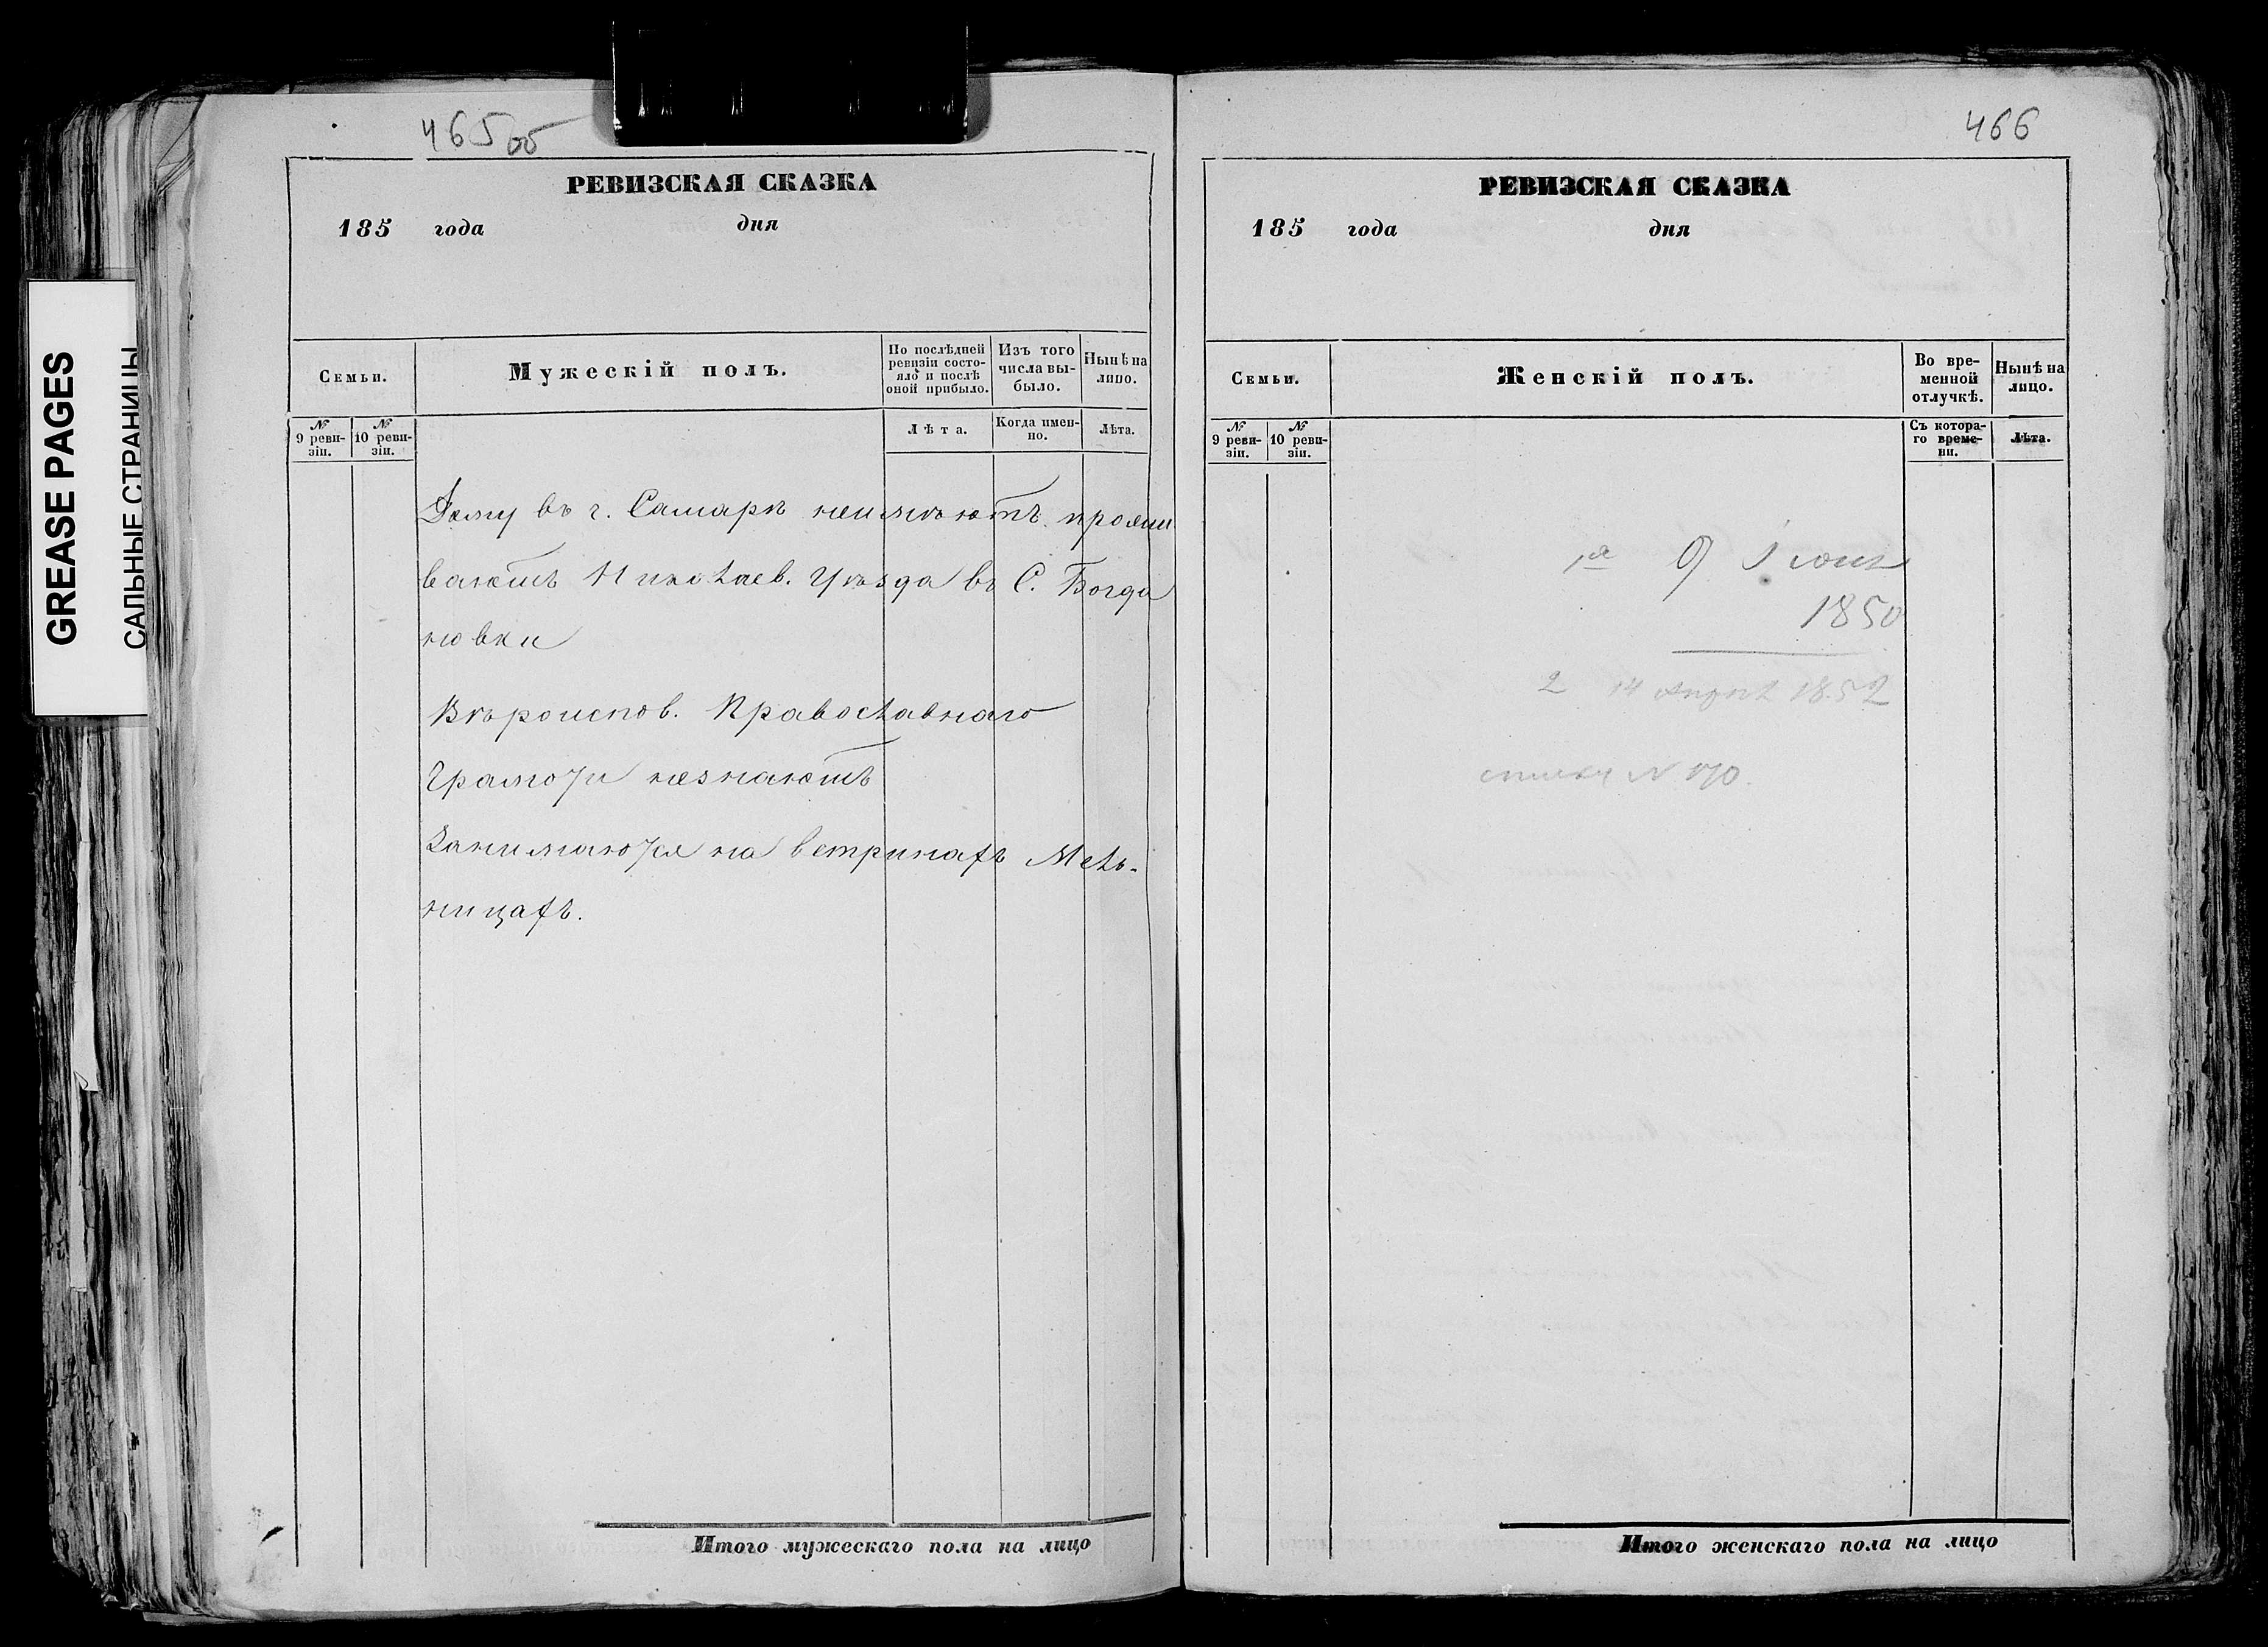 GREASE PAGES
САЛЬНЫЕ СТРАНИЦЫ
465 об
РЕВИЗСКАЯ СКАЗКА
185 года дня
Семьи.
Мужескій полъ.
По послѣдней ревизіи состояло и послѣ оной прибыло.
Изъ того числа выбыло.
Нынѣ на лицо.
№ 9 ревизіи.
№ 10 ревизіи.
Лѣта.
Когда именно.
Лѣта.
Дому въ г. Самарѣ неимѣютъ прожи
ваютъ Николаев. Уѣзда въ С. Богда
новки
Вѣроиспов. Православнаго
Грамоти незнаютъ
Занимаются на ветринахъ Мель-
ницахъ.
Итого мужескаго пола на лицо
466
РЕВИЗСКАЯ СКАЗКА
185 года дня
Семьи.
Женскій полъ.
Во временной отлучкѣ.
Нынѣ на лицо.
№ 9 ревизіи.
№ 10 ревизіи.
Съ котораго времени.
Лѣта.
1я 9
1850
2 14 1852
Итого женскаго пола на лицо